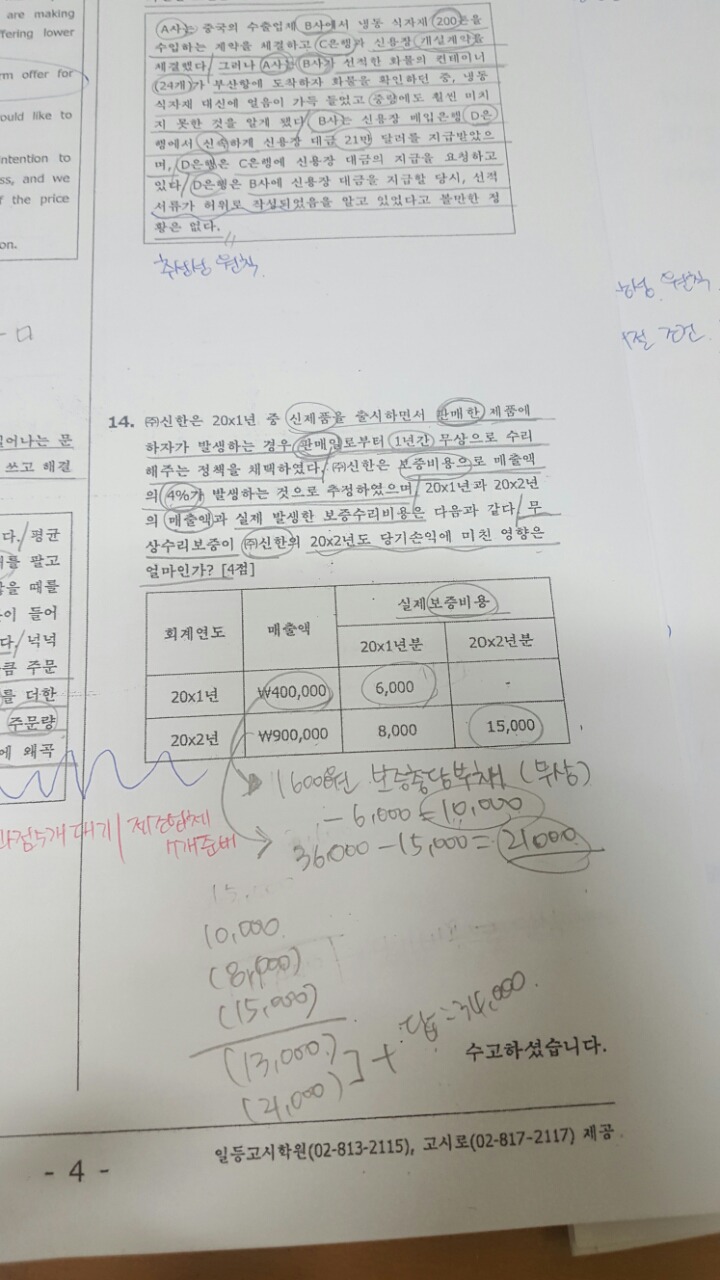 are making
ffering lower
rm offer for
ould like to
ntention to
ss, and we
f the price
on.
A사는 중국의 수출업체 B사에서 냉동 식자재 200톤을
수입하는 계약을 체결하고 C은행과 신용장 개설계약을
체결했다. 그러나 A사는 B사가 선적한 화물의 컨테이너
(24개)가 부산항에 도착하자 화물을 확인하던 중, 냉동
식자재 대신에 얼음이 가득 들었고 중량에도 훨씬 미치
지 못한 것을 알게 됐다. B사는 신용장 매입은행 D은
행에서 신속하게 신용장 대금 21만 달러를 지급받았으
며, D은행은 C은행에 신용장 대금의 지급을 요청하고
있다. D은행은 B사에 신용장 대금을 지급할 당시, 선적
서류가 허위로 작성되었음을 알고 있었다고 볼만한 정
황은 없다.
추상성 원칙
성 원칙
조건
14. ㈜신한은 20x1년 중 신제품을 출시하면서 판매한 제품에
하자가 발생하는 경우 판매일로부터 1년간 무상으로 수리
해주는 정책을 채택하였다. ㈜신한은 보증비용으로 매출액
의 4%가 발생하는 것으로 추정하였으며, 20x1년과 20x2년
의 매출액과 실제 발생한 보증수리비용은 다음과 같다. 무
상수리보증이 ㈜신한의 20x2년도 당기손익에 미친 영향은
얼마인가? [4점]
일어나는 문
쓰고 해결
다. 평균
를 팔고
을 때를
이 들어
다. 넉넉
큼 주문
를 더한
주문량
에 왜곡
회계연도 매출액 실제 보증비용
20x1년분 20x2년분
20x1년 ₩400,000 6,000 -
20x2년 ₩900,000 8,000 15,000
1600원 보증충당부채 (무상)
- 6,000 = 10,000
36,000 - 15,000 = 21,000
과정 5개 대기 / 제조업체
7개 준비
15
10,000
(8,000)
(15,000)
(13,000)
(21,000) ] + 답 = 34,000.
수고하셨습니다.
- 4 -
일등고시학원(02-813-2115), 고시로(02-817-2117) 제공